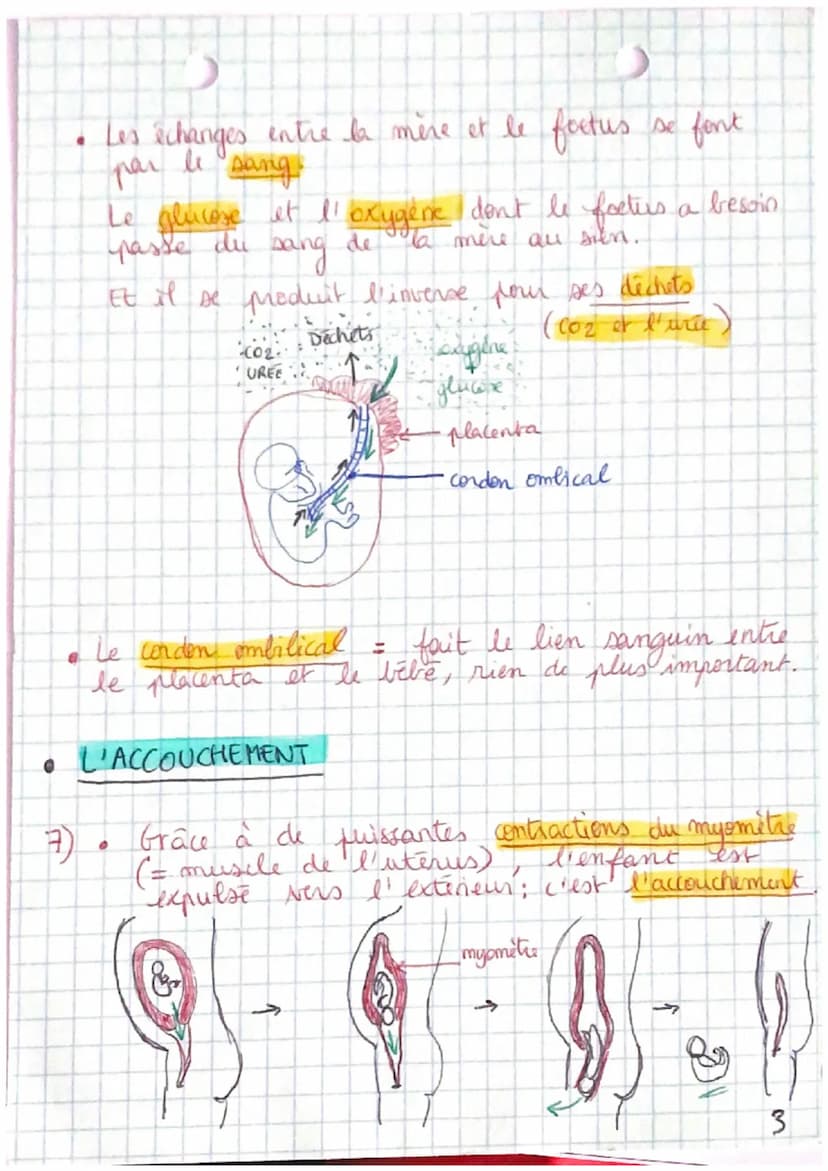 • Les échanges entre la mère et le foetus se font
par le sang.
Le glucose et l'oxygène dont le foetus a besoin
passe du sang de la mère au sien.
Et il se produit l'inverse pour ses déchets
(CO2 et l'urée)
CO2
URÉE
Déchets
oxygène
+
glucose
placenta
cordon omblical
• Le cordon ombilical = fait le lien sanguin entre
le placenta et le bébé, rien de plus important.
• L'ACCOUCHEMENT
7) • Grâce à de puissantes contractions du myomètre
(= muscle de l'utérus), l'enfant est
expulsé vers l'extérieur; c'est l'accouchement.
myomètre
3